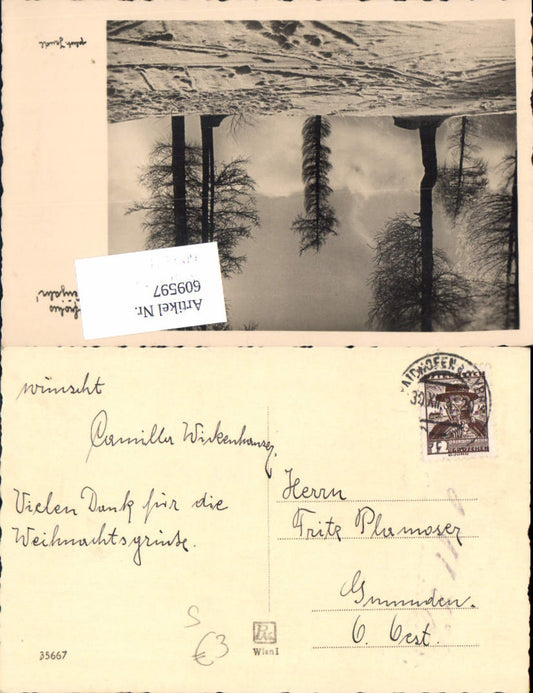 Artikel Nr.
609597
wünscht
Camilla Wickenhauser
Vielen Dank für die
Weihnachtsgrüße.
Herrn
Fritz Plamoser
Gmunden.
O. Oest.
S
€3
35667
Wien I